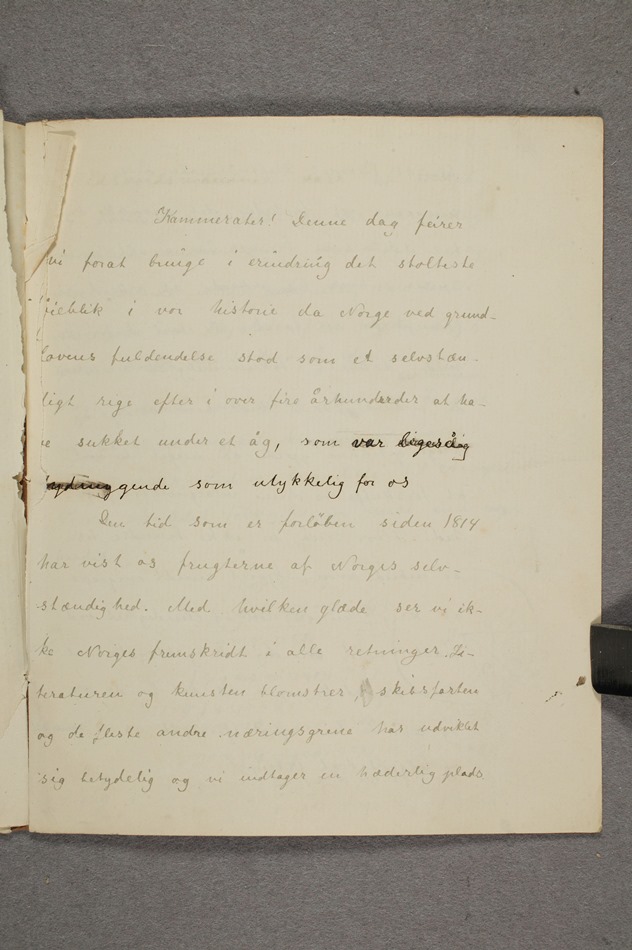 Kammerater! Denne dag feirer
vi forat bringe i erindring det stolteste
øieblik i vor historie da Norge ved grund-
lovens fuldendelse stod som et selvstæn-
ligt rige efter i over fire århundreder at ha-
ve sukket under et åg, som var ligeså
gende som ulykkelig for os
Den tid som er forløben siden 1814
har vist os frugterne af Norges selv-
stændighed. Med hvilken glæde ser vi ik-
ke Norges fremskridt i alle retninger. Li-
teraturen og kunsten blomstrer, skibsfarten
og de fleste andre næringsgrene har udviklet
sig betydelig og vi indtager en hæderlig plads